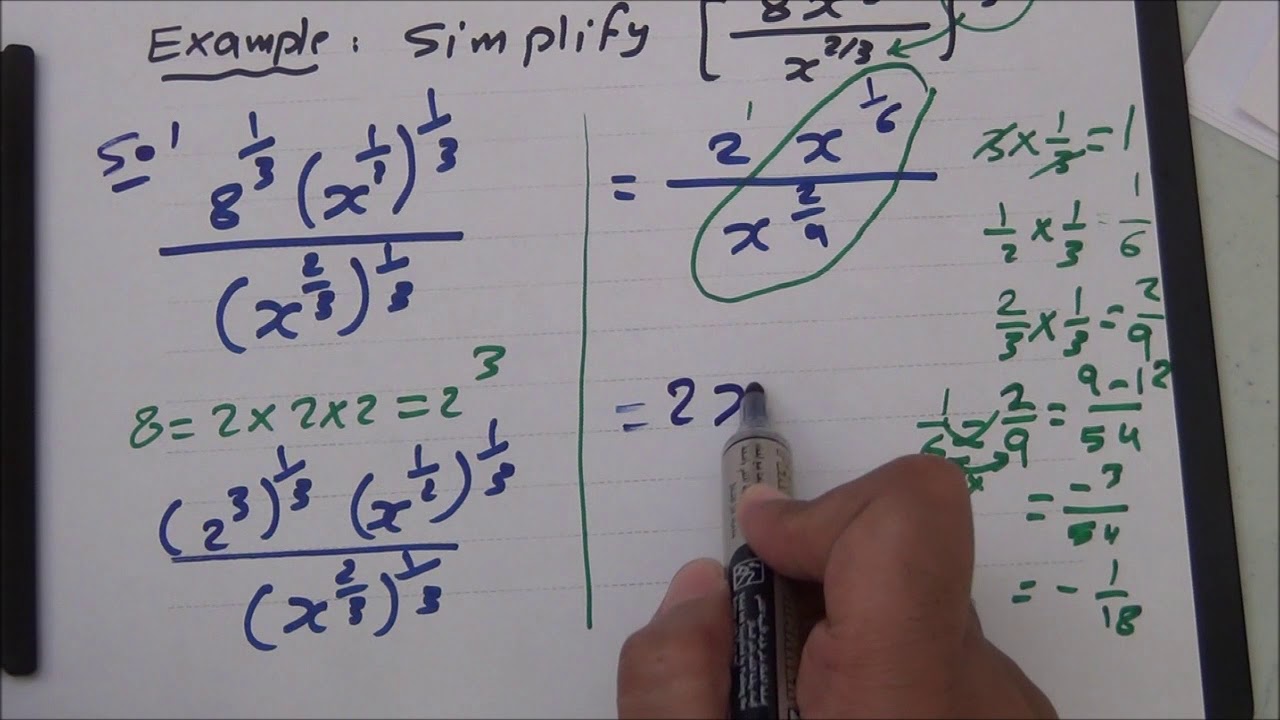 Example: Simplify [8x / x^(2/3)]
Sol
8^(1/3) (x^(1/2))^(1/3) / (x^(2/3))^(1/3)
8 = 2 × 2 × 2 = 2^3
(2^3)^(1/3) (x^(1/2))^(1/3) / (x^(2/3))^(1/3)
= 2^1 x^(1/6) / x^(2/9)
= 2x
3 × 1/3 = 1
1/2 × 1/3 = 1/6
2/3 × 1/3 = 2/9
1/6 - 2/9 = 9-12/54
= -3/54
= - 1/18